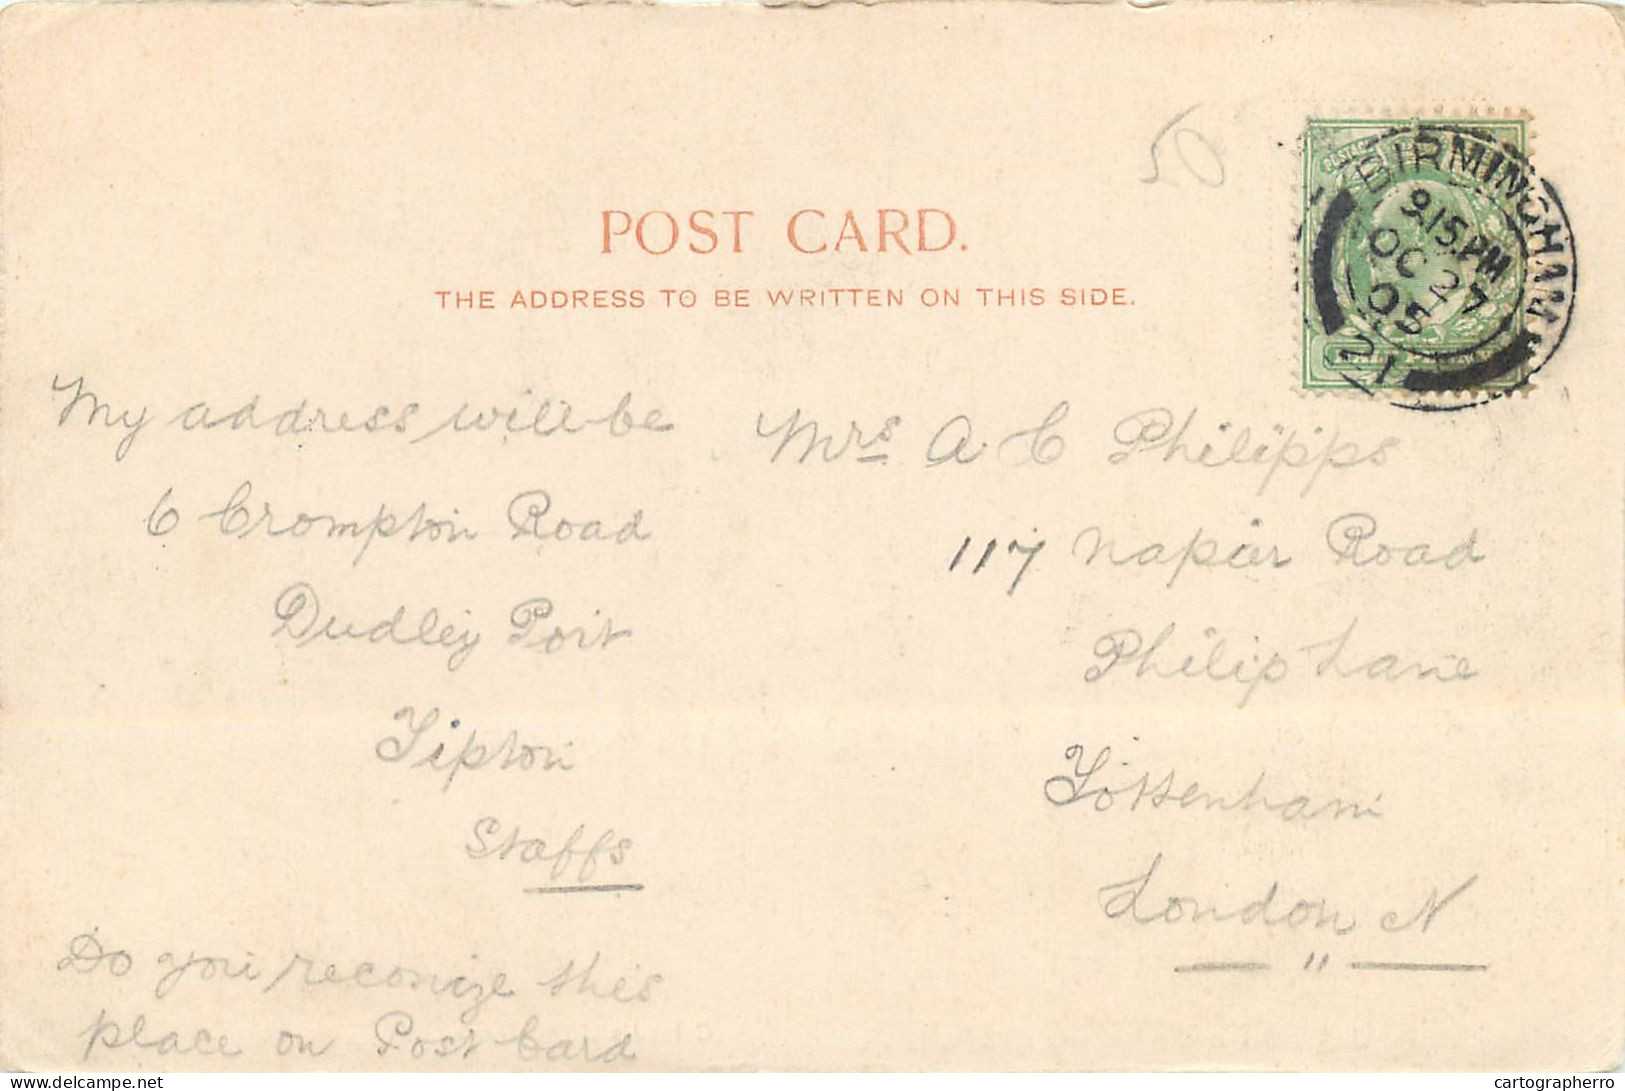 50
POST CARD.
THE ADDRESS TO BE WRITTEN ON THIS SIDE.
BIRMINGHAM
9.15 PM
OC 27
05
21
My address will be
6 Crompton Road
Dudley Port
Tipton
Staffs
Do you reconize this
place on Post Card
Mrs A. C Philipps
117 Napier Road
Philip Lane
Tottenham
London N
www.delcampe.net
cartographerro